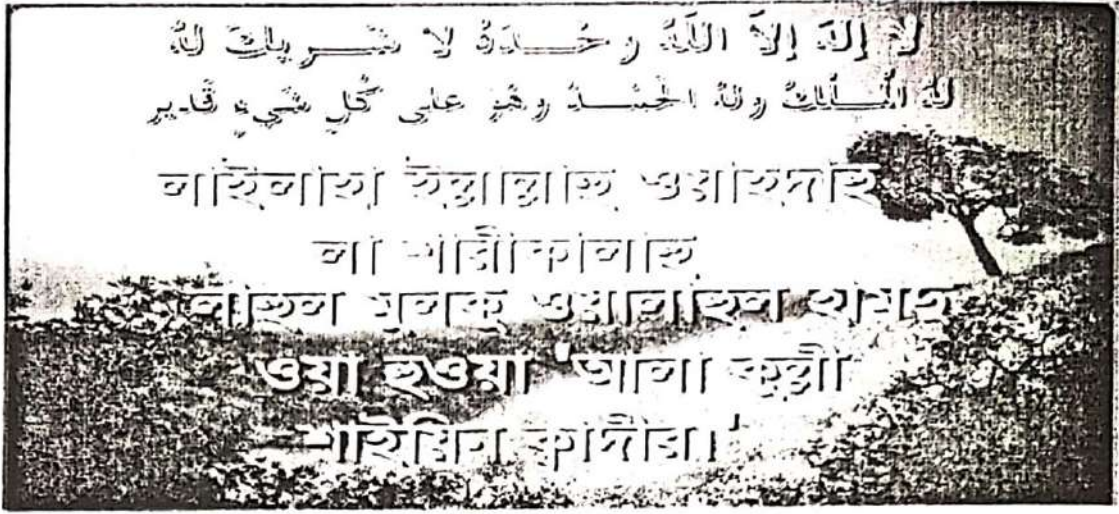 لا إله إلا الله وحده لا شريك له
له الملك وله الحمد وهو على كل شيء قدير
লাইলাহা ইল্লাল্লাহু ওয়াহদাহু
লা শারীকালাহু
লাহুল মুলকু ওয়ালাহুল হামদু
ওয়া হুওয়া 'আলা কুল্লী
শাইয়িন ক্বাদীর।'